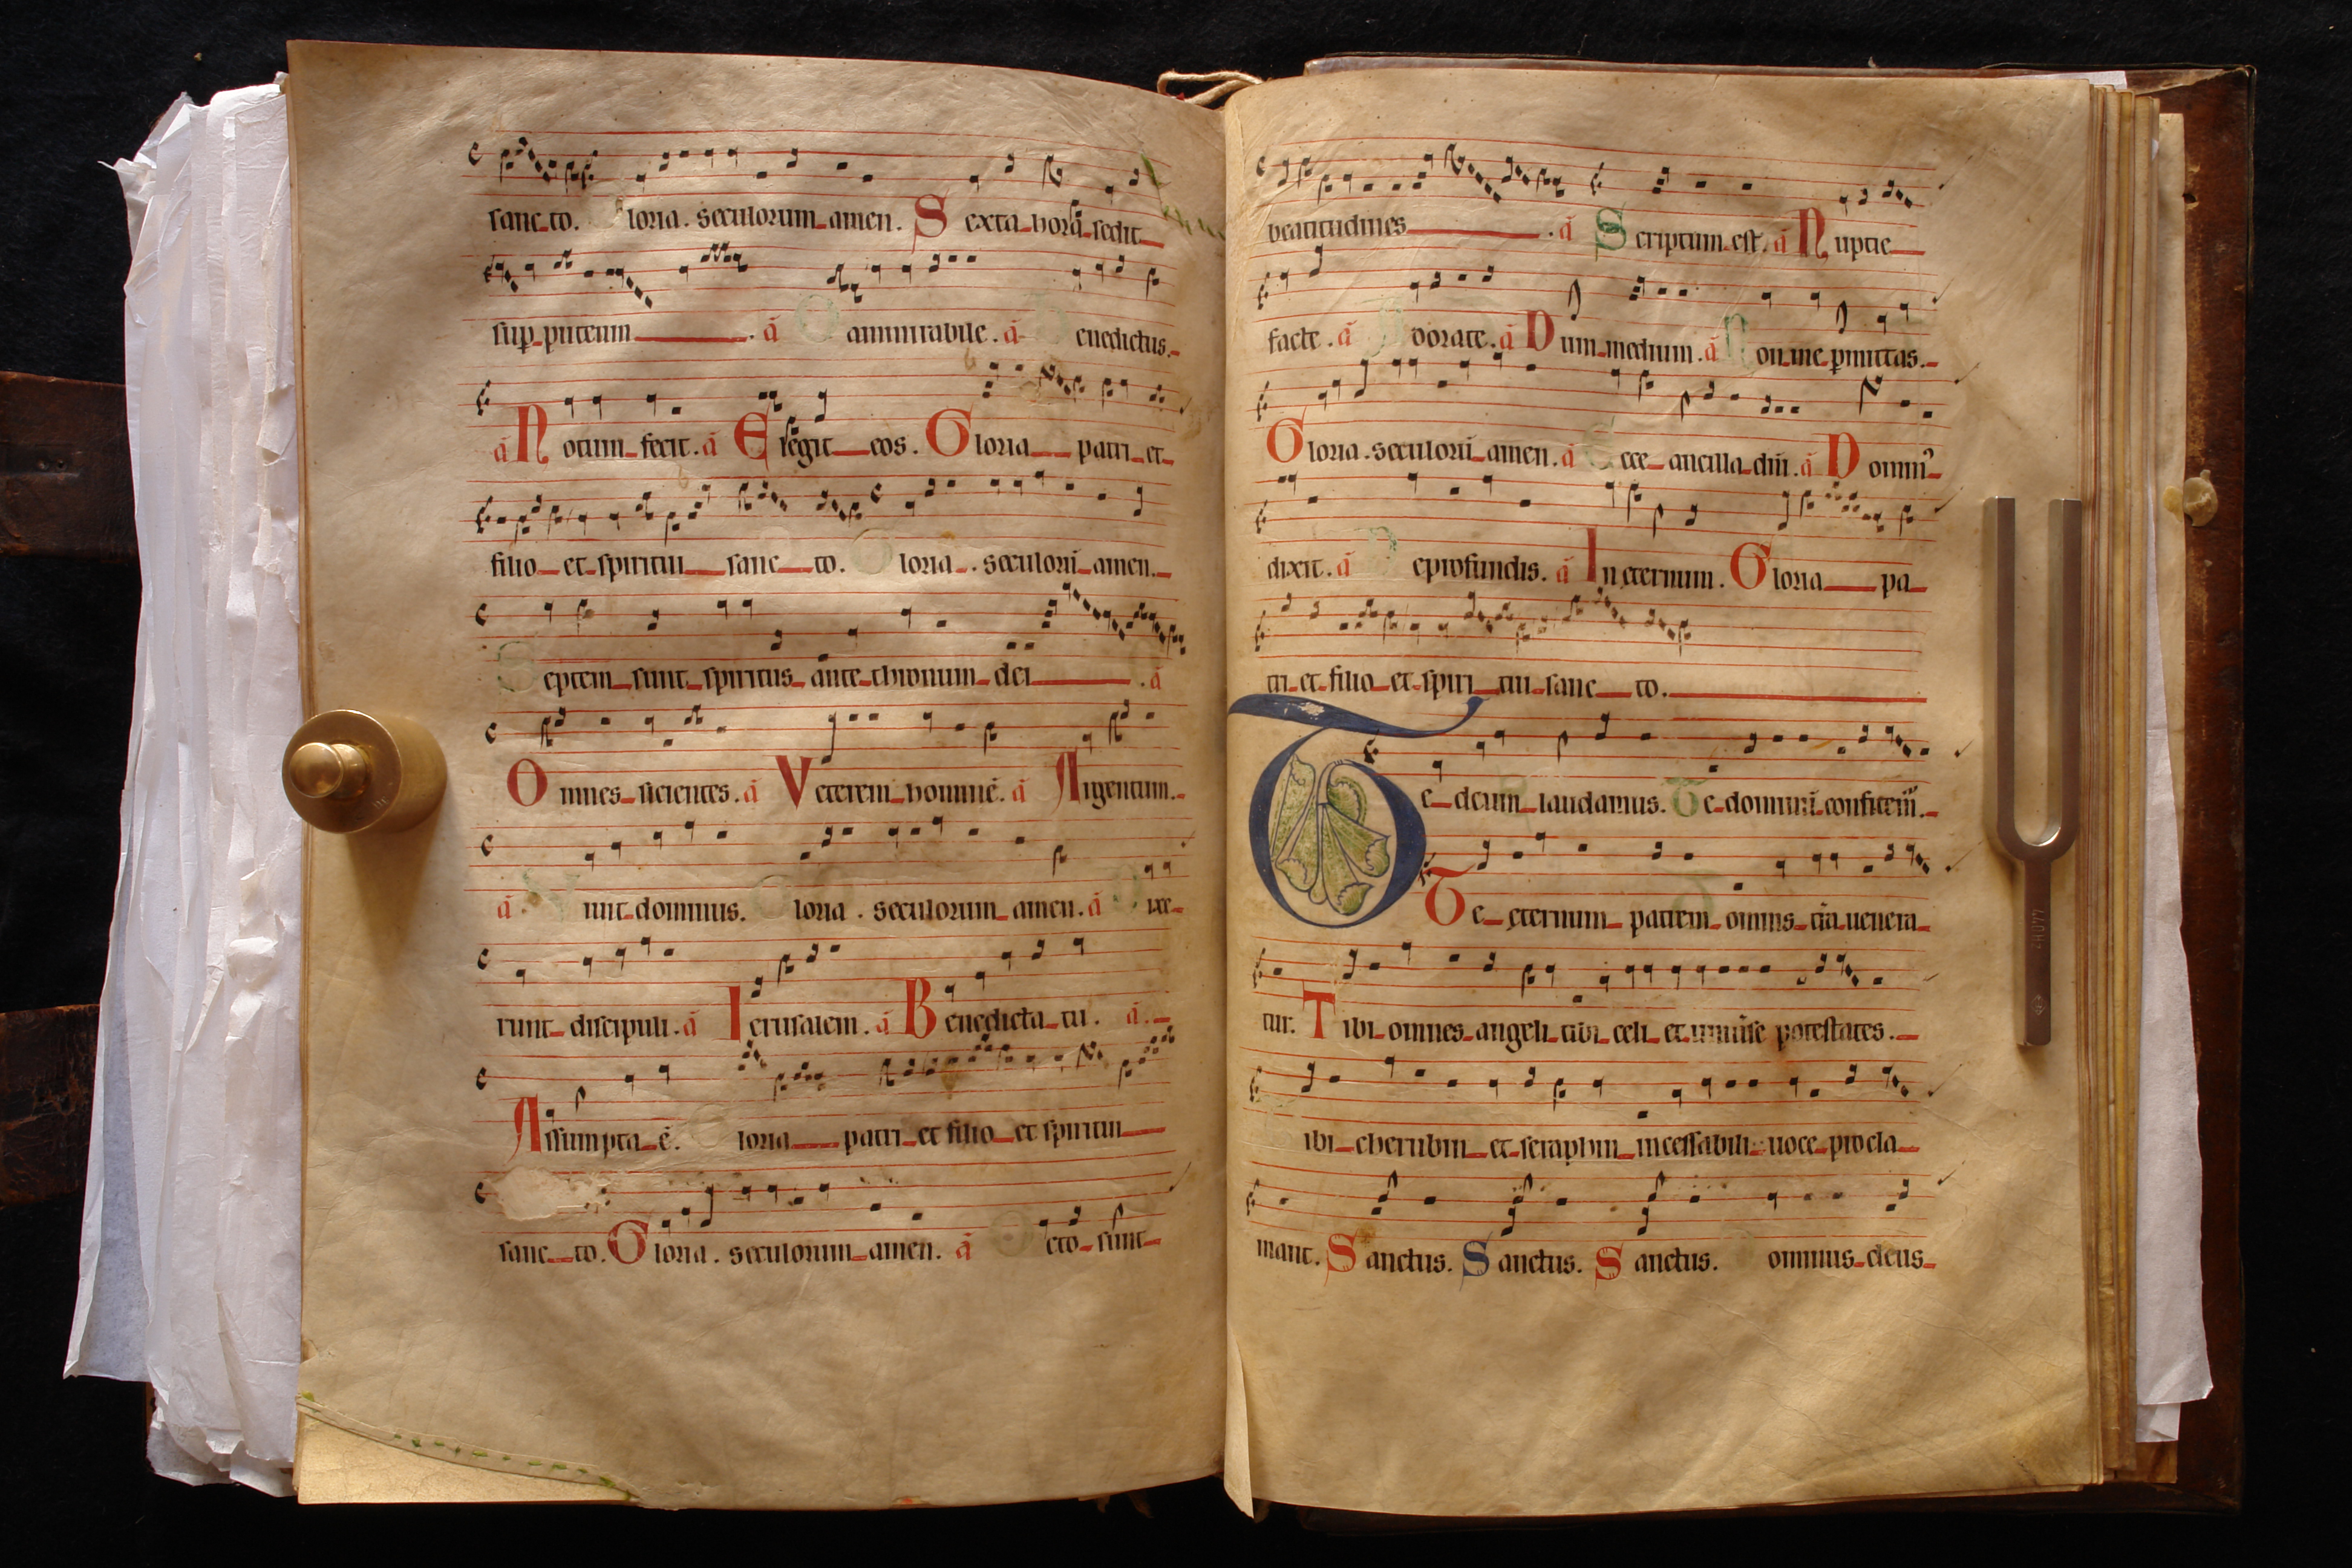 sanc to. Gloria. seculorum amen. Sexta hora sedit
sup puteum. a O ammirabile. a Benedictus.
a Notum fecit. a Elegit eos. Gloria patri et
filio et spiritui sanc to. Gloria. seculorū amen.
Septem sunt spiritus ante thronum dei. a
Omnes sicientes. a Veterem hominē. a Argentum.
a nit dominus. Gloria. seculorum amen. a Dixe
runt discipuli. a Ierusalem. a Benedicta tu. a.
Assumpta ē. Gloria patri et filio et spiritui
sanc to. Gloria. seculorum amen. a Octo sunt
beatitudines. a Scriptum est. a Nuptie
facte. a Adorate. a Dum medium. a Non me pmittas.
Gloria. seculorū amen. a Ecce ancilla dñi. a Domin᷒
dixit. a De profundis. a In eternum. Gloria pa
tri et filio et spiri tui sanc to.
Te deum laudamus. Te dominū confitem᷒.
Te eternum patrem omnis t̄ra uenera
tur. Tibi omnes angeli tibi celi et uniuse potestates.
Tibi cherubin et seraphin incessabili uoce procla
mant. Sanctus. Sanctus. Sanctus. Dominus deus